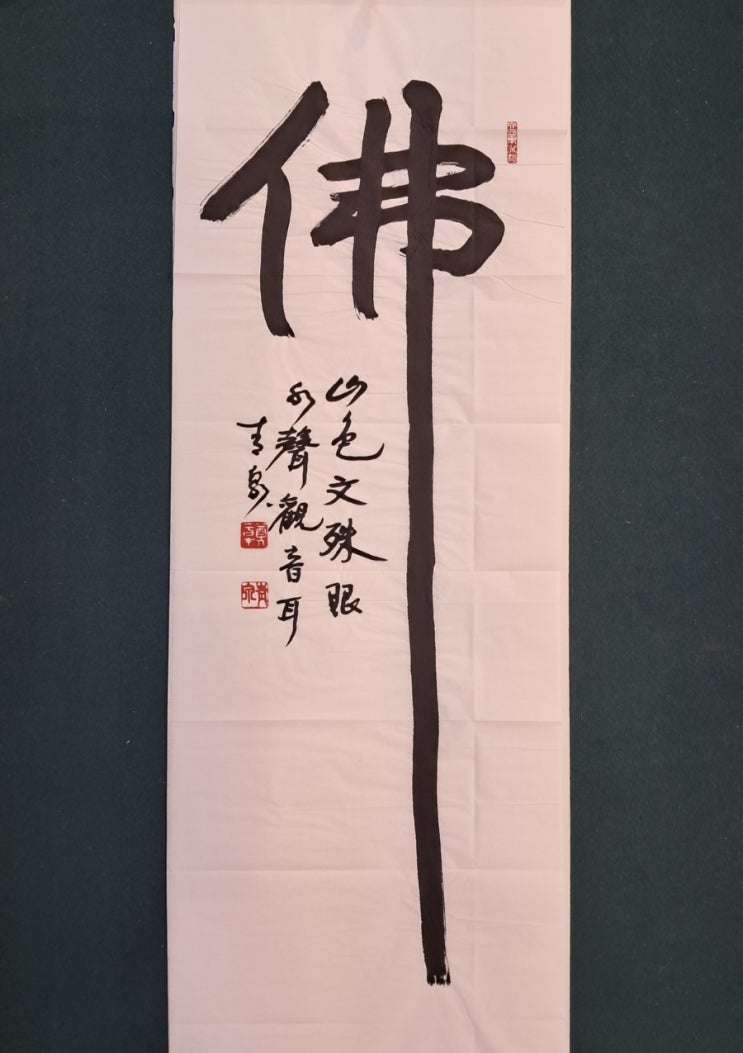 佛
山色文殊眼
水聲觀音耳
青泉